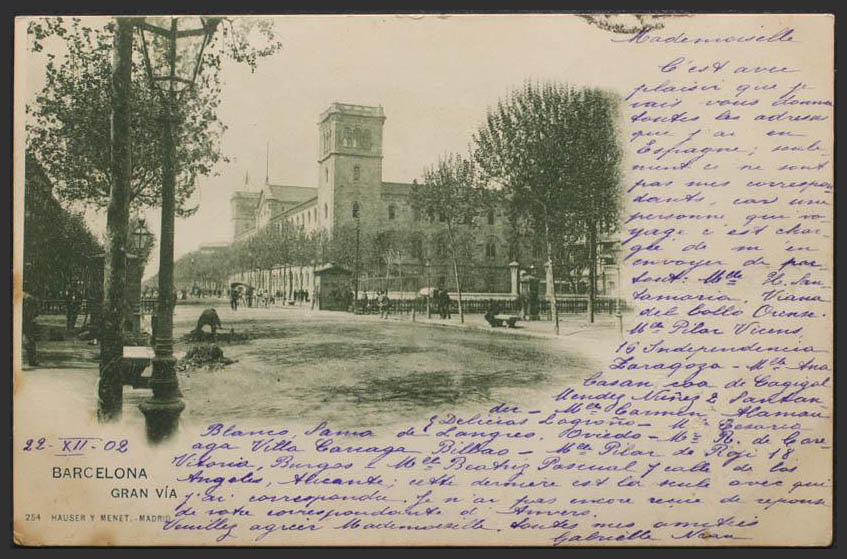 Mademoiselle
C'est avec
plaisir que je
vais vous donner
toutes les adresses
que j'ai en
Espagne; seule-
ment ce ne sont
pas mes correspon-
dants, car une
personne qui vo-
yage c'est char-
gée de m'en
envoyer de par-
tout: Mlle H. San-
tamaria. Viana
del Bollo Orense.
Mlle Pilar Vicens,
19 Independencia
Zaragoza - Mlle Ana
Casan, de Cagigal
Mendez Nuñez 2 Santan
der - Mlle Carmen Alamau
2 Delicias Logroño - Rosario
Blanco, Sama de Langreo. Oviedo - Mlle R. de Care-
aga Villa Careaga Bilbao - Mlle Pilar de Roji 18
Vitoria, Burgos - Mlle Beatriz Pascual 7 calle de los
Angeles, Alicante; cette dernière est la seule avec qui
j'ai correspondu. Je n'ai pas encore reçue de reponse
de votre correspondante d'Anvers.
Veuillez agréer Mademoiselle toutes mes amitiés
Gabrielle
22-XII-02
BARCELONA
GRAN VÍA
254 HAUSER Y MENET.-MADRID